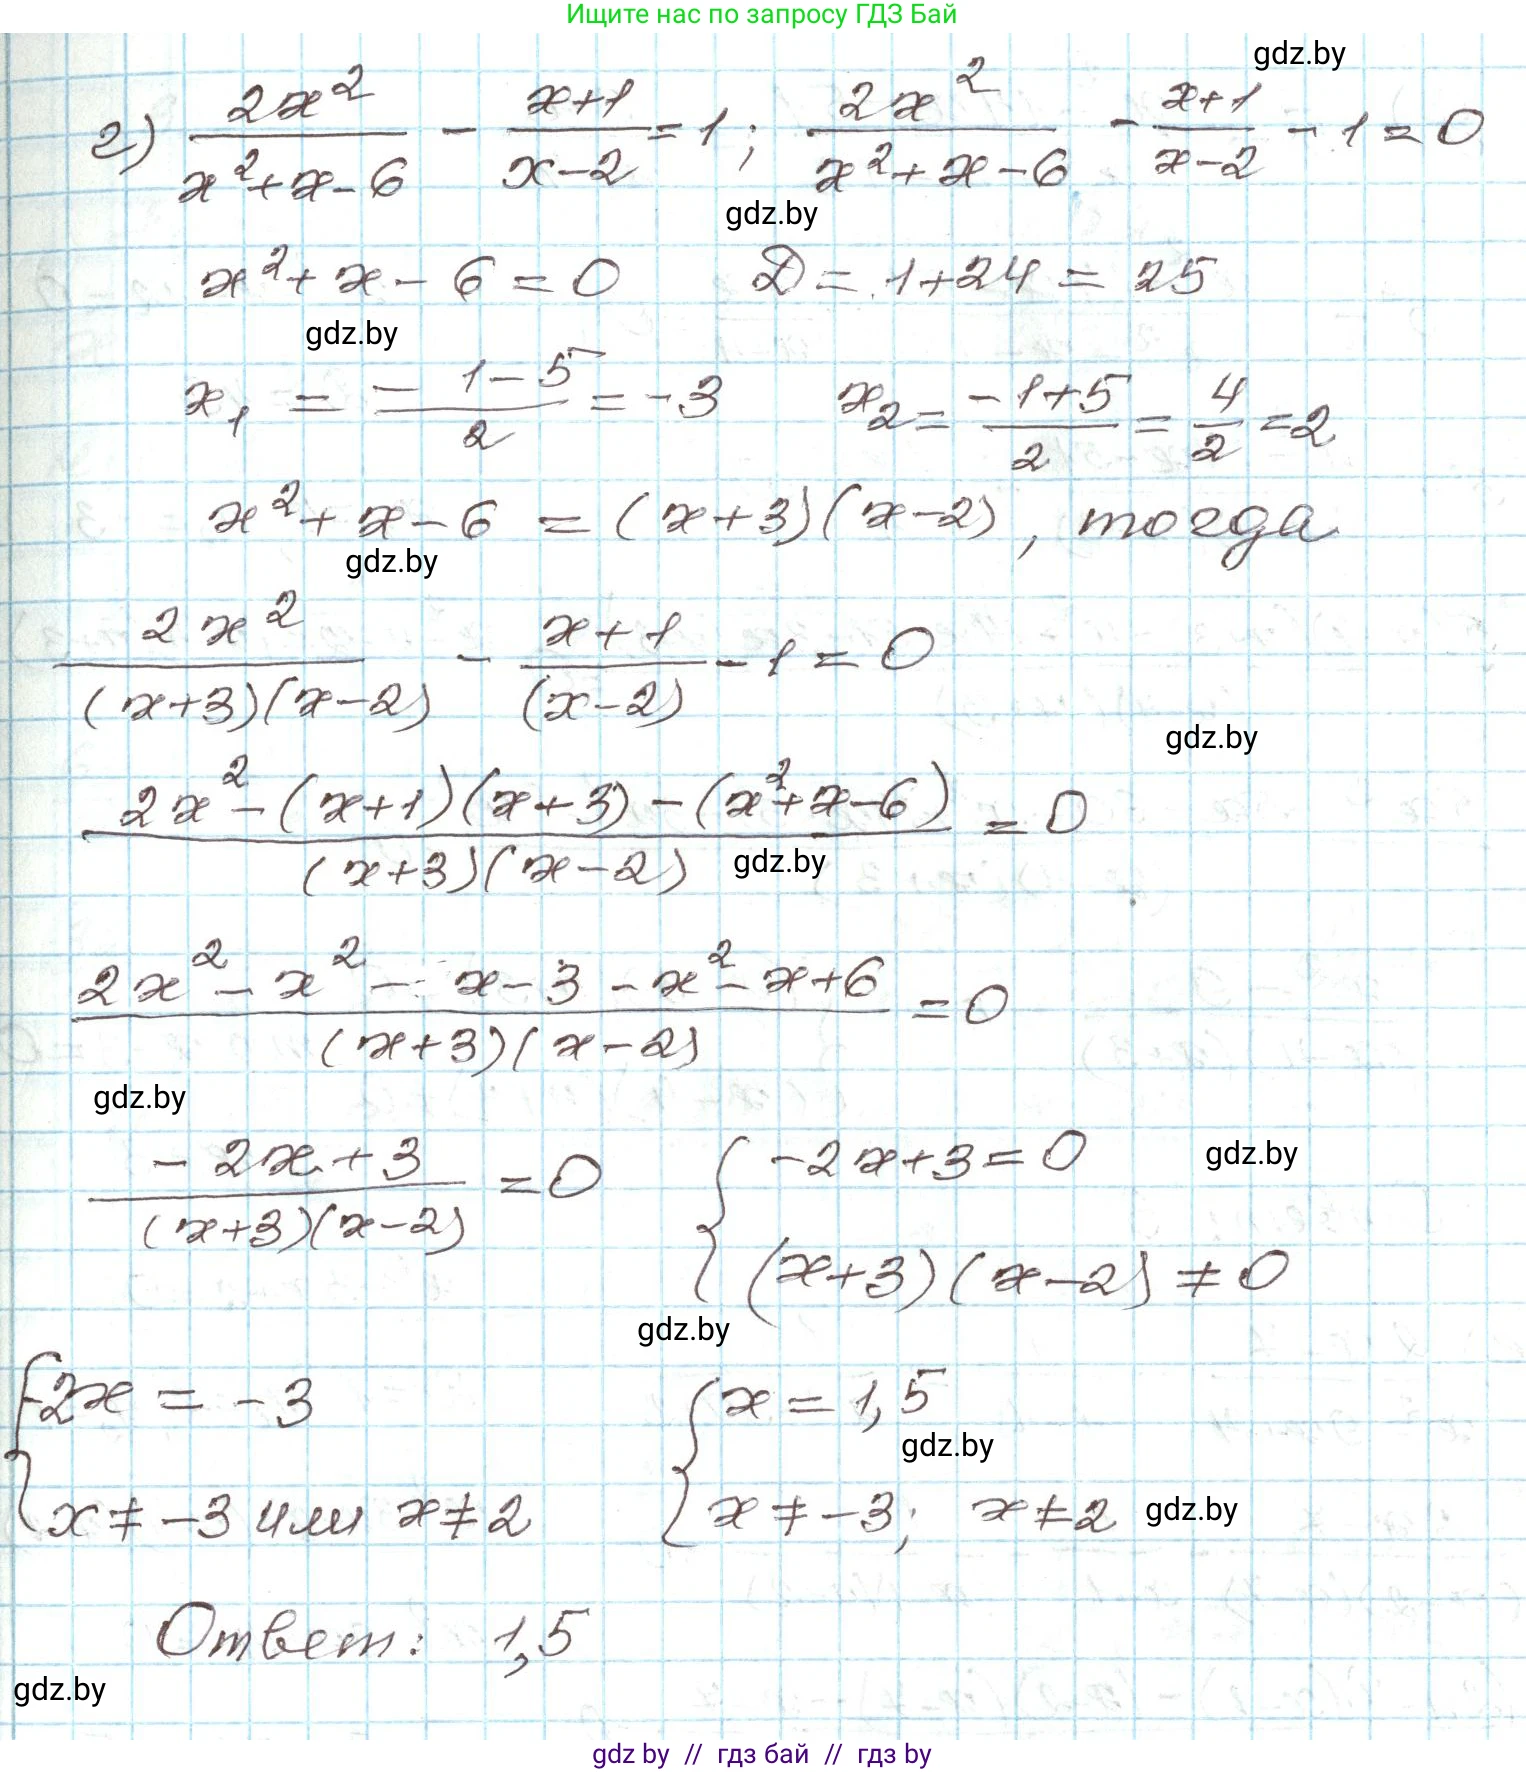 Ищите нас по запросу ГДЗ Бай
gdz.by
г) 2x²/(x²+x-6) - (x+1)/(x-2) = 1; 2x²/(x²+x-6) - (x+1)/(x-2) - 1 = 0
gdz.by
x²+x-6=0 D=1+24=25
gdz.by
x₁ = (-1-5)/2 = -3 x₂ = (-1+5)/2 = 4/2 = 2
x²+x-6 = (x+3)(x-2), тогда
gdz.by
2x²/((x+3)(x-2)) - (x+1)/(x-2) - 1 = 0
gdz.by
(2x²-(x+1)(x+3)-(x²+x-6))/((x+3)(x-2)) = 0
gdz.by
(2x²-x²-x-3-x²-x+6)/((x+3)(x-2)) = 0
gdz.by
(-2x+3)/((x+3)(x-2)) = 0 { -2x+3=0
gdz.by
(x+3)(x-2)≠0
gdz.by
{ -2x = -3 { x = 1,5
gdz.by
x≠-3 или x≠2 x≠-3; x≠2
gdz.by
Ответ: 1,5
gdz.by
gdz by // гдз бай // гдз by